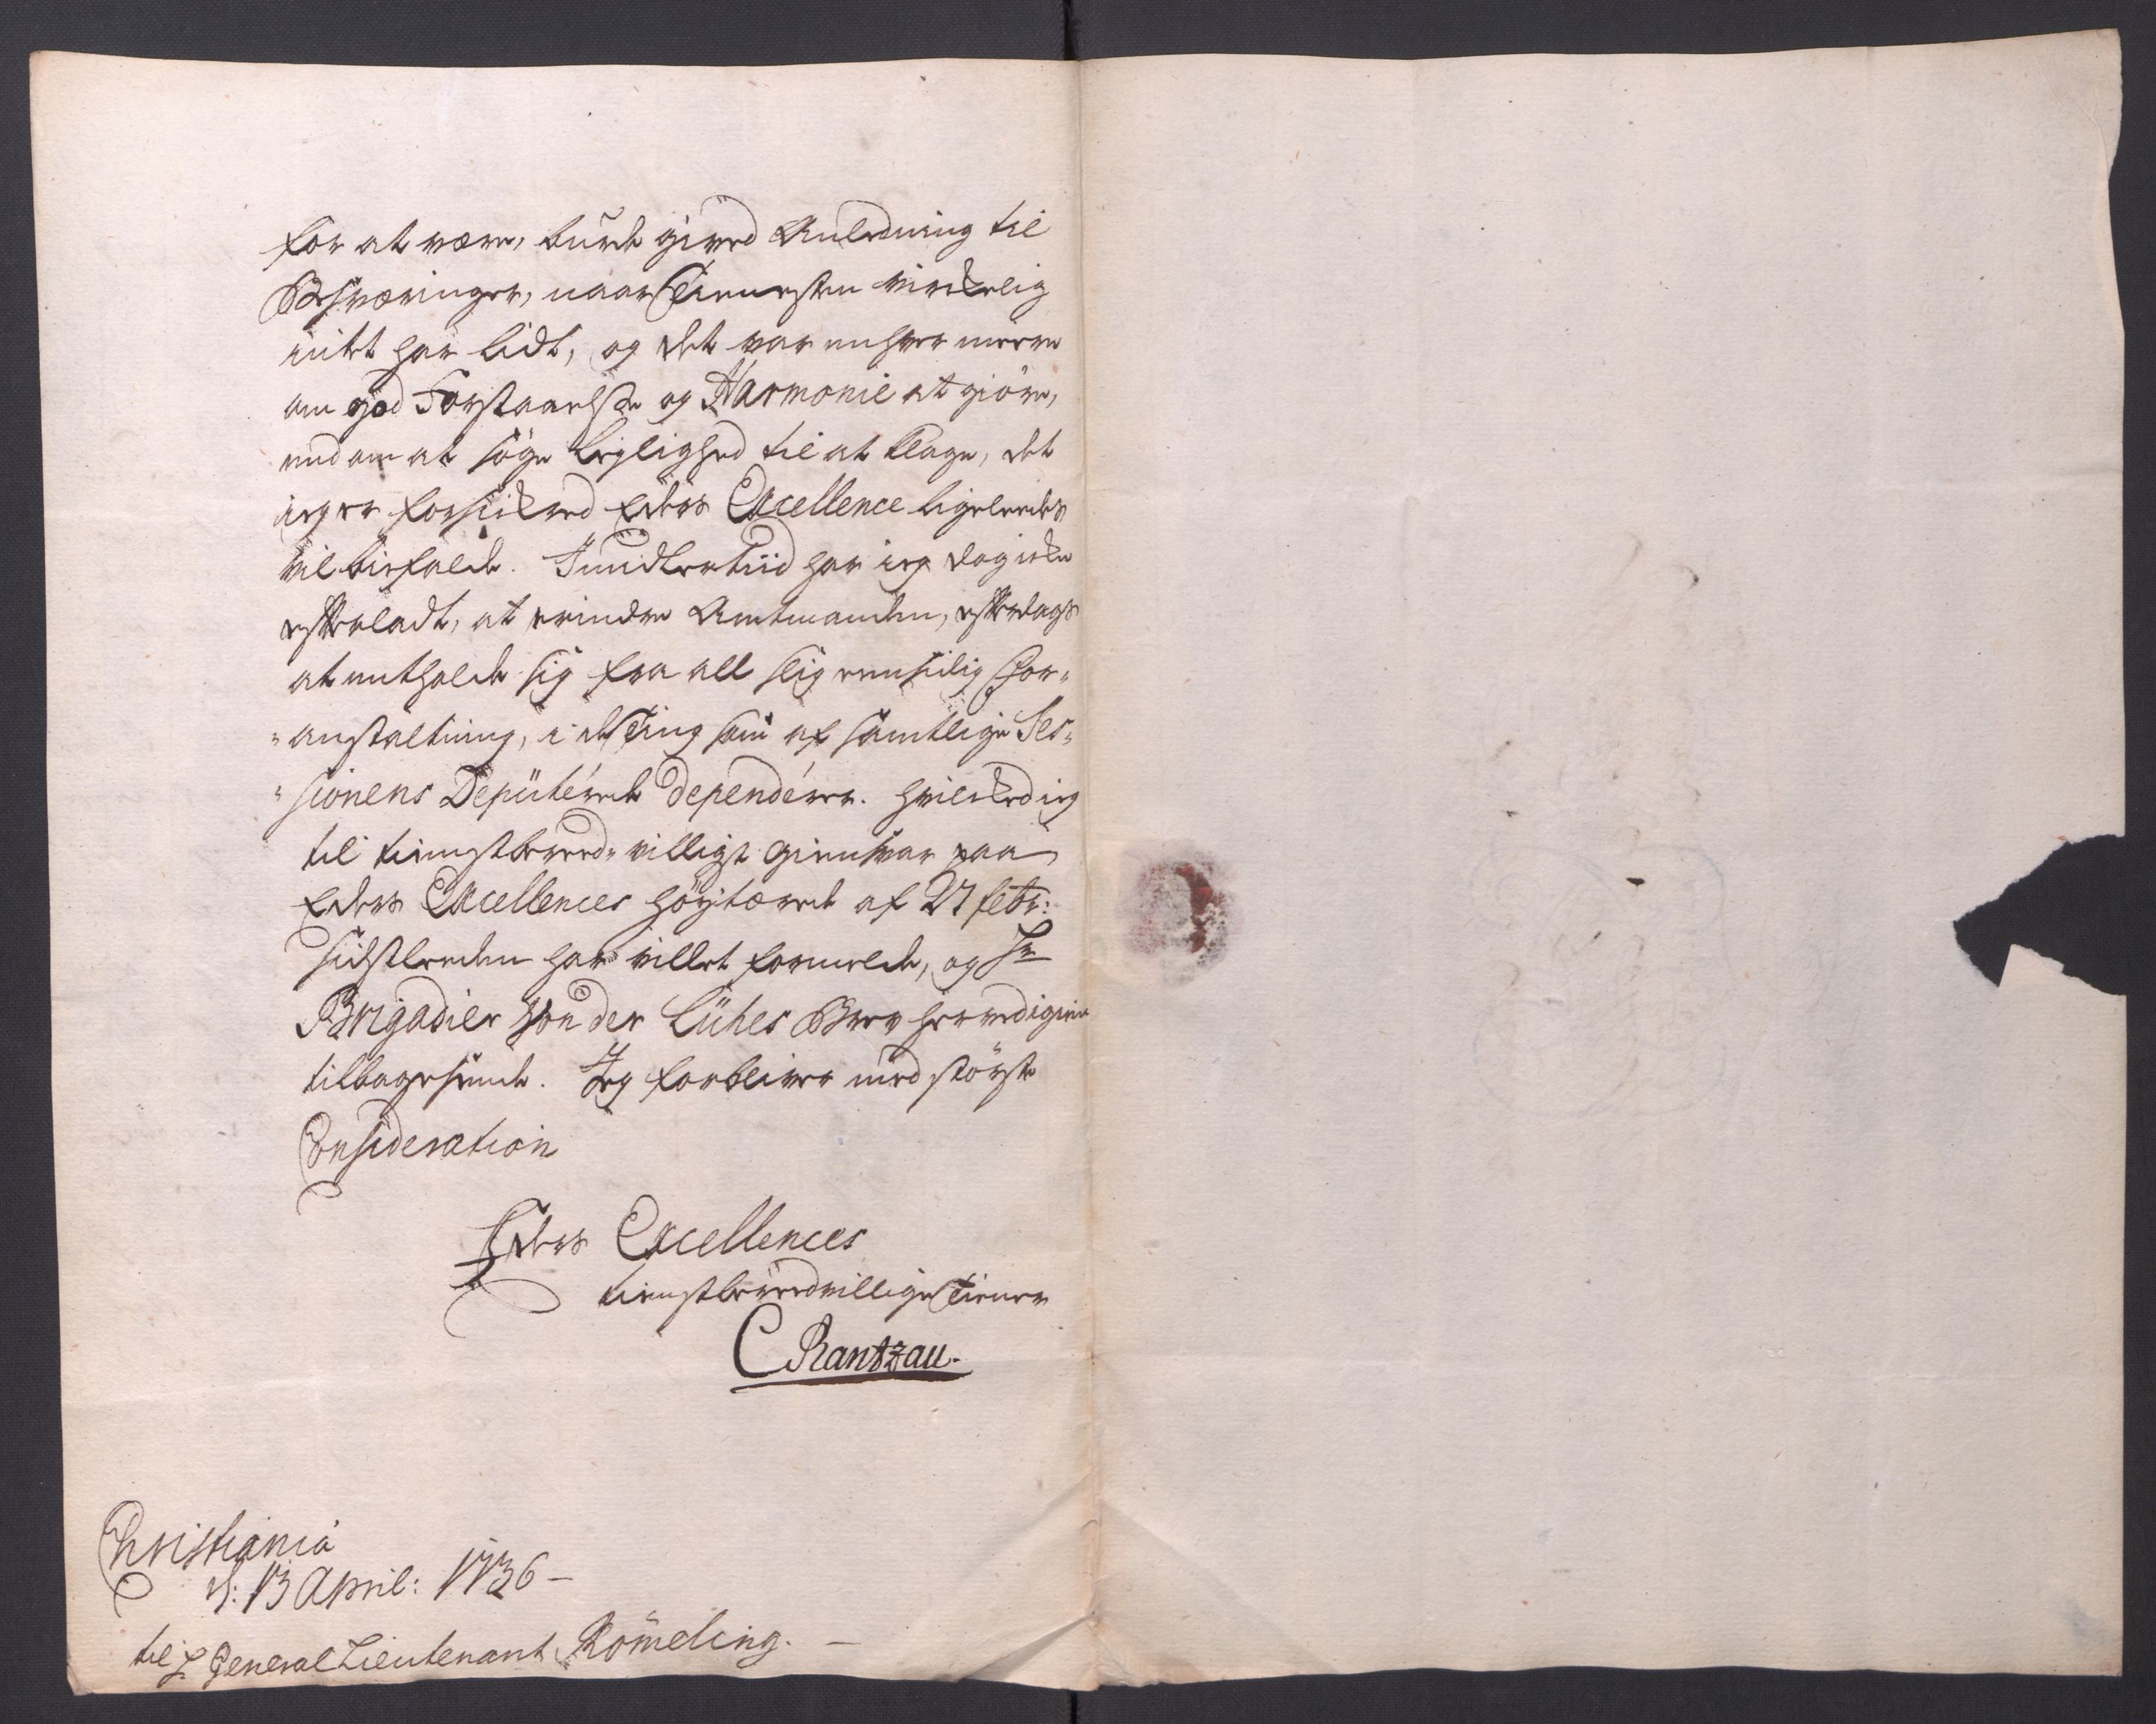 for at være, burde gived Anledning til
Besværinger, naar Tienesten virkelig
intet har lidt, og det var enhver meere
om god Forstaaelse og Harmonie at giöre,
end om at söge Leylighed til at klage, det
ieg er forsikred Eders Excellence ligeleedes
vil biefalde. Imidlertiid har ieg dog icke
efterladt, at erindre Amtmanden, efterdags
at entholde sig fra all slig eensidig For„
„anstaltning, i de Ting som af samtlige Ses„
„sionens Deputérede dependérer. Hvilcked ieg
til tienstbereed„villigst Giensvar paa
Eders Excellences höystærede af 27 febr:
sidstleeden har villet formelde, og Hr
Brigadier von der Lühes Brev herved igien
tilbagesende. Jeg forbliver med störste
Consideration
Eders Excellences
tienstbereedvillige Tiener
CRantzau.
Christiania
d: 13 April: 1736 –
til H General Lieutenant Römeling. –